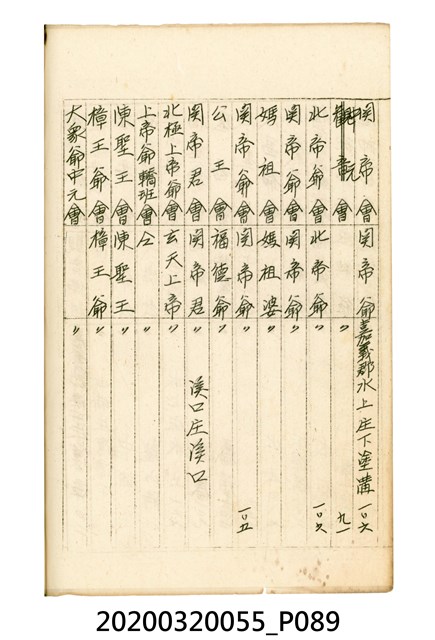 関帝會 関帝爺 嘉義郡水上庄下塗溝 一〇六
會 〃 九一
北帝爺會 北帝爺 〃 一〇六
関帝爺會 関帝爺 〃
媽祖會 媽祖婆 〃
関帝爺會 関帝爺 〃 一〇五
公王會 福德爺 〃
関帝君會 関帝君 〃 溪口庄溪口
北極上帝爺會 玄天上帝 〃
上帝爺轎班會 仝 〃
陳聖王會 陳聖王 〃
樟王爺會 樟王爺 〃
大眾爺中元會 〃
20200320055_P089